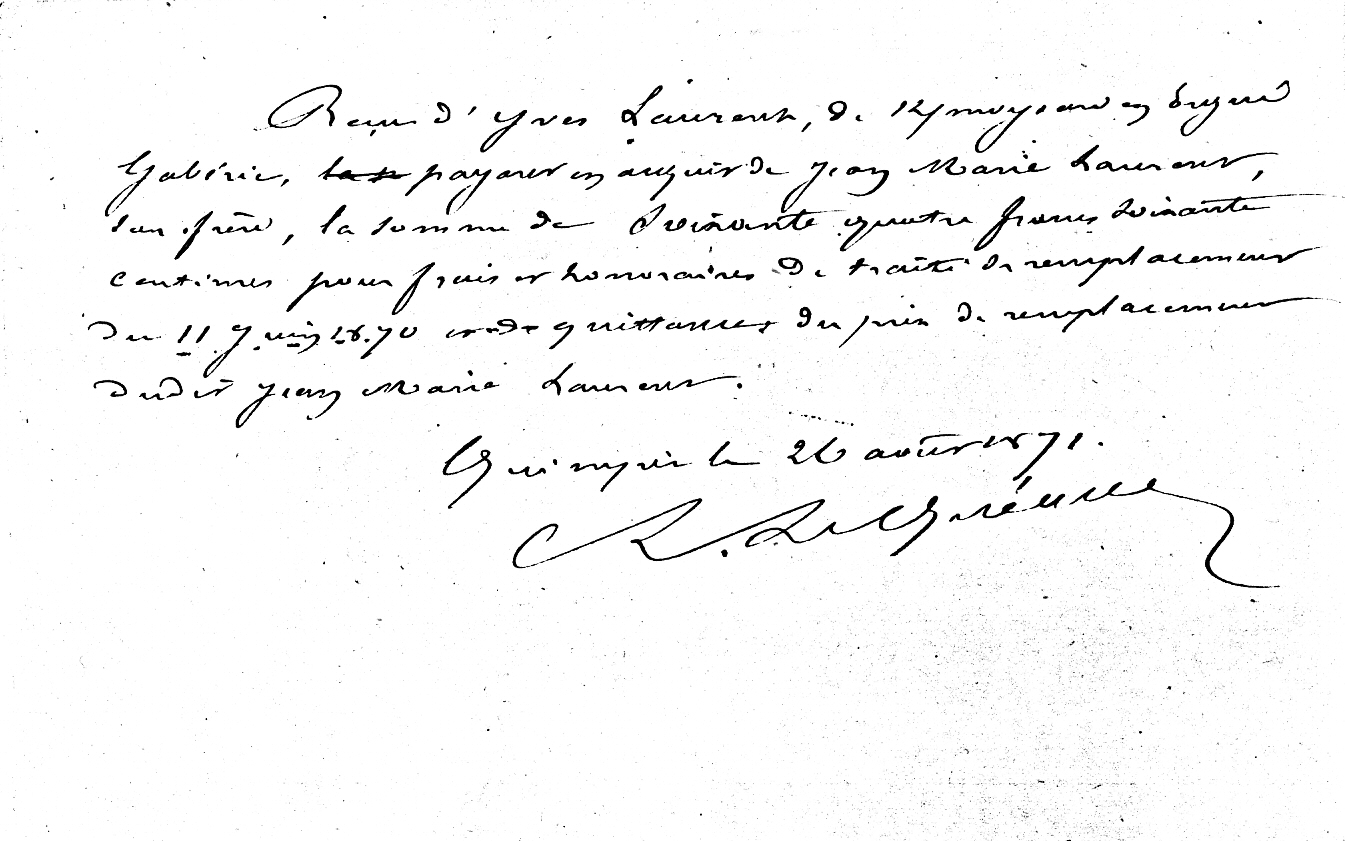 Reçu d'Yves Laurent, de Kymoysan en Ergué
Gabéric, la so payant en acquit de Jean Marie Laurent,
son frère, la somme de Soixante quatre francs soixante
centimes pour frais et honoraires de traité de remplacement
du 11 Juin 1870 et de quittances du prix de remplacement
dudit Jean Marie Laurent.
Quimper le 26 août 1871.
Le Guéune